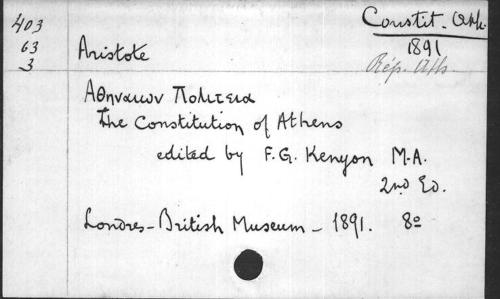 403
63
3
Constit. Ath.
1891
Rép. Ath.
Aristote
Αθηναιων Πολιτεια
The Constitution of Athens
edited by F.G. Kenyon M.A.
2nd Ed.
Londres - British Museum - 1891. 8o